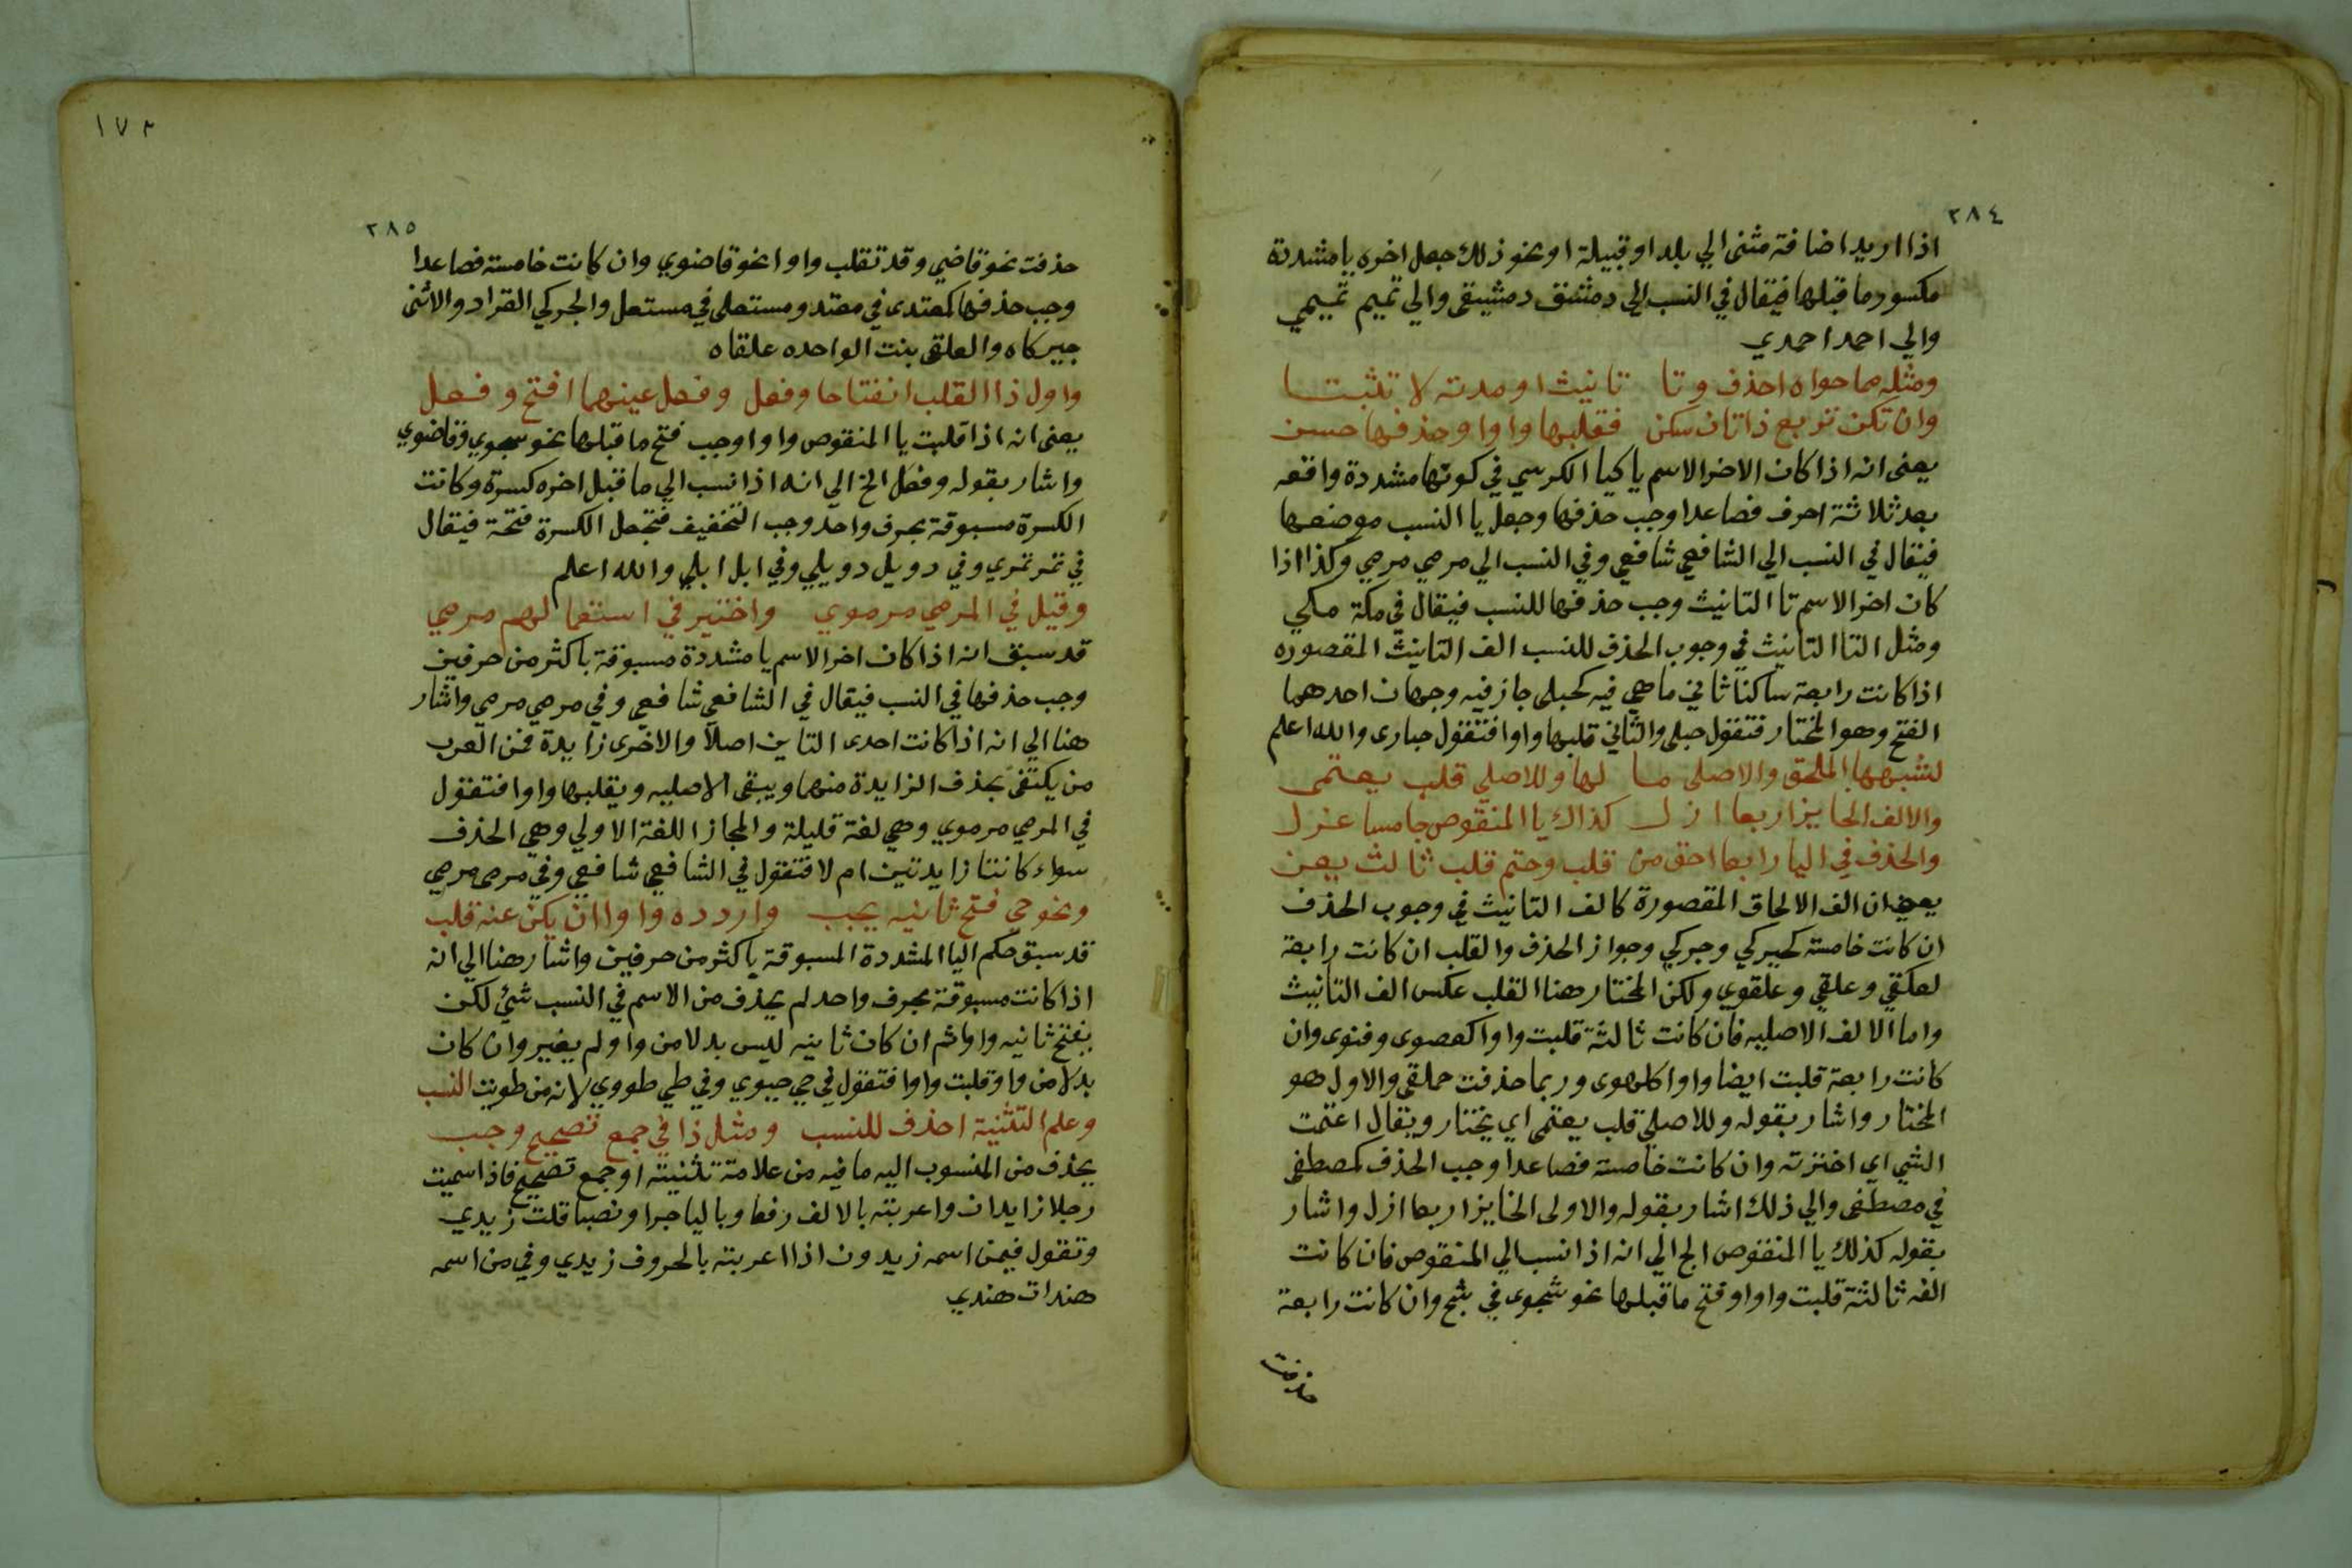 ٢٨٤
اذا اريد اضافة مثنى الي بلد او قبيلة او نحو ذلك جعل اخره يا مشددة
مكسور ما قبلها فيقال في النسب الي دمشق دمشيقي والي تميم تميمي
والي احمد احمدي
ومثله مما حواه احذف وتا تانيث او مدته لا تثبتا
وان تكن تربع ذا ثان سكن فقلبها واوا وحذفها حسن
يعني انه اذا كان الاخر الاسم يا كيا الكرسي في كونها مشددة واقعه
بعد ثلاثة احرف فصاعدا وجب حذفها وجعل يا النسب موضعها
فيقال في النسب الي الشافعي شافعي وفي النسب الي مرمي مرمي وكذا اذا
كان اخر الاسم تا التانيث وجب حذفها للنسب فيقال في مكة مكي
ومثل التا التانيث في وجوب الحذف للنسب الف التانيث المقصوره
اذا كانت رابعة ساكنا ثاني ما هي فيه كحبلى جاز فيه وجهان احدهما
الفتح وهو المختار فتقول حبلي والثاني قلبها واوا فتقول حباري والله اعلم
لشبهها الملحق والاصلي ما لها وللاصلي قلب يعتمى
والالف الحايز اربعا ازل كذاك يا المنقوص خامسا عزل
والحذف في اليا رابعا احق من قلب وحتم قلب ثالث يعن
يعني ان الف الالحاق المقصورة كالف التانيث في وجوب الحذف
ان كانت خامسة كحبركي وجبركي وجواز الحذف والقلب ان كانت رابعة
لعلقي وعلقي وعلقوي ولكن المختار هنا القلب عكس الف التانيث
واما الالف الاصليه فان كانت ثالثة قلبت واوا كعصوى وفتوى وان
كانت رابعة قلبت ايضا واوا كلهوى وربما حذفت حملقي والاول هو
المختار واشار بقوله وللاصلي قلب يعتمى اي يختار ويقال اعتمت
الشي اي اخترته وان كانت خامسة فصاعدا وجب الحذف كمصطفي
في مصطفى والي ذلك اشار بقوله والاولى الحايز اربعا ازل واشار
بقوله كذلك يا المنقوص الخ الي انه اذا نسب الي المنقوص فان كانت
الفه ثالثة قلبت واوا وفتح ما قبلها نحو شجوى في شج وان كانت رابعة
حذفت
١٧٢
٢٨٥
حذفت نحو قاضي وقد تقلب واوا نحو قاضوي وان كانت خامسة فصاعدا
وجب حذفها كمعتدى في معتد ومستعلى في مستعل والجركي القراد والانثى
جبركاه والعلقى بنت الواحده علقاه
واول ذا القلب انفتاحا وفعل وفعل عينهما افتح وفعل
يعني انه اذا قلبت يا المنقوص واوا وجب فتح ما قبلها نحو شجوي وقاضوي
واشار بقوله وفعل الخ الي انه اذا نسب الي ما قبل اخره كسرة وكانت
الكسرة مسبوقة بحرف واحد وجب التخفيف فتجعل الكسرة فتحة فيقال
في نمر نمري وفي دويل دويلي وفي ابل ابلي والله اعلم
وقيل في المرمي مرموي واختير في استعمالهم مرمي
قد سبق انه اذا كان اخر الاسم يا مشددة مسبوقة باكثر من حرفين
وجب حذفها في النسب فيقال في الشافعي شافعي وفي مرمي مرمي واشار
هنا الي انه اذا كانت احدى التاين اصلا والاخرى زايدة فمن العرب
من يكتفى بحذف الزايدة منهما ويبقى الاصليه ويقلبها واوا فتقول
في المرمي مرموي وهي لغة قليلة والمجاز اللغة الاولي وهي الحذف
سواء كانتا زايدتين ام لا فتقول في الشافعي شافعي وفي مرمى مرمي
ونحو حي فتح ثانيه يجب واردده واوا ان يكن عنه قلب
قد سبق حكم اليا المشددة المسبوقة باكثر من حرفين واشار هنا الي انه
اذا كانت مسبوقة بحرف واحد لم يحذف من الاسم في النسب شيئ لكن
يفتح ثانيه واوا ثم ان كان ثانيه ليس بدلا من واو لم يغير وان كان
بدلا من واو قلبت واوا فتقول في حي حيوي وفي طي طووي لانه من طويت النسب
وعلم التثنية احذف للنسب ومثل ذا في جمع تصحيح وجب
يحذف من المنسوب اليه ما فيه من علامة تثنية او جمع تصحيح فاذا سميت
رجلا زايدان واعربته بالالف رفعا وباليا جرا ونصبا قلت زيدي
وتقول فيمن اسمه زيدون اذا اعربته بالحروف زيدي وفي من اسمه
هندات هندي